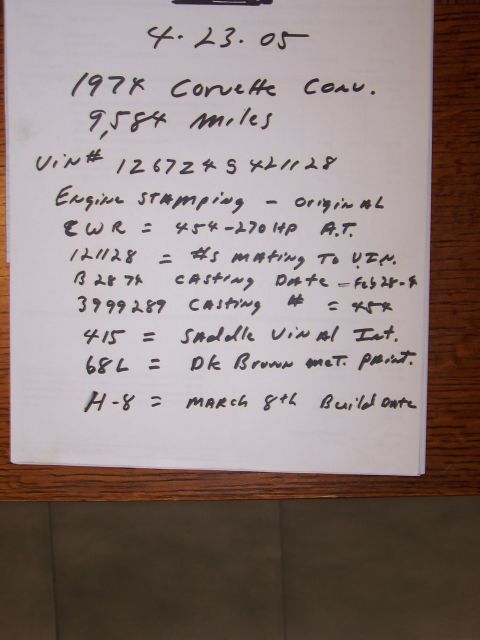 4.23.05
1974 Corvette Conv.
9,584 miles
Vin# 1Z67Z4S421128
Engine Stamping - Original
CWR = 454-270HP A.T.
121128 = #s mating To VIN.
B 28 74 Casting Date - Feb 28-4
3999289 Casting # = 454
415 = Saddle Vinal Int.
68L = Dk Brown met. Paint.
H-8 = March 8th Build Date